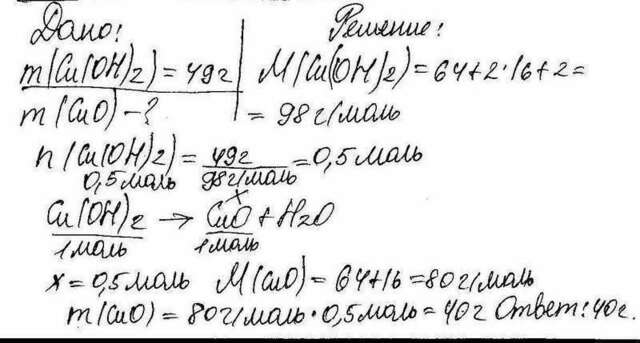 Дано: Решение:
m(Cu(OH)2) = 49г M(Cu(OH)2) = 64+2·16+2=
m(CuO) - ? = 98 г/моль
n(Cu(OH)2) = 49г/98г/моль = 0,5 моль
0,5 моль x
Cu(OH)2 → CuO + H2O
1 моль 1 моль
x = 0,5 моль M(CuO) = 64+16 = 80 г/моль
m(CuO) = 80 г/моль · 0,5 моль = 40 г Ответ: 40 г.